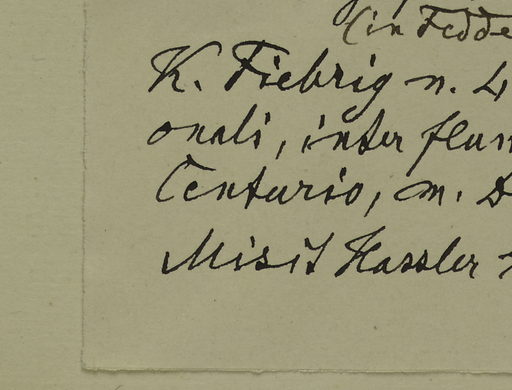 (in Fedde
K. Fiebrig n. 4
onali, inter flum
Centurio, m. D
Misit Hassler